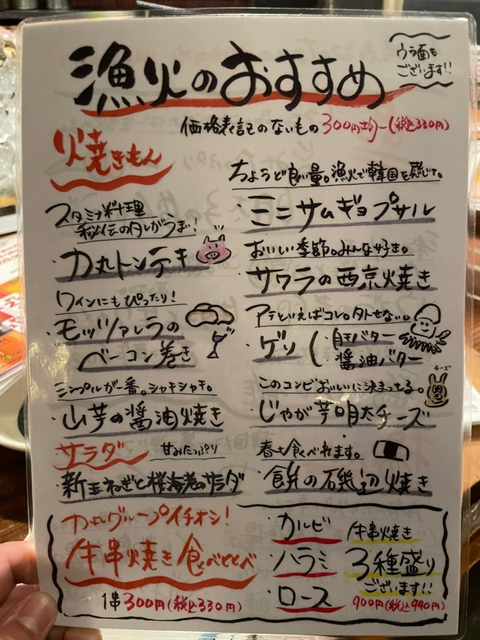 漁火のおすすめ
ウラ面も
ございます!!
価格表記のないもの 300円均一(税込330円)
焼きもん
スタミナ料理
秘伝のタレがうま!
・力丸トンテキ
ワインにもぴったり!
・モッツァレラの
ベーコン巻き
シンプルが一番。シャキシャキ。
・山芋の醤油焼き
サラダ 甘みたっぷり
・新玉ねぎと桜海老のサラダ
ちょうど良い量。漁火で韓国を感じて。
・ミニサムギョプサル
おいしい季節。みんな好き。
・サワラの西京焼き
アテといえばコレ。ハズせない。
・ゲソ(
バター
醤油バター
チーズ
このコンビおいしいに決まってる。
・じゃが芋明太チーズ
春も食べれます。
・餅の磯辺焼き
力丸グループイチオシ!
牛串焼き食べとくべ
1串300円(税込330円)
・カルビ
・ハラミ
・ロース
牛串焼き
3種盛り
ございます!!
900円(税込990円)